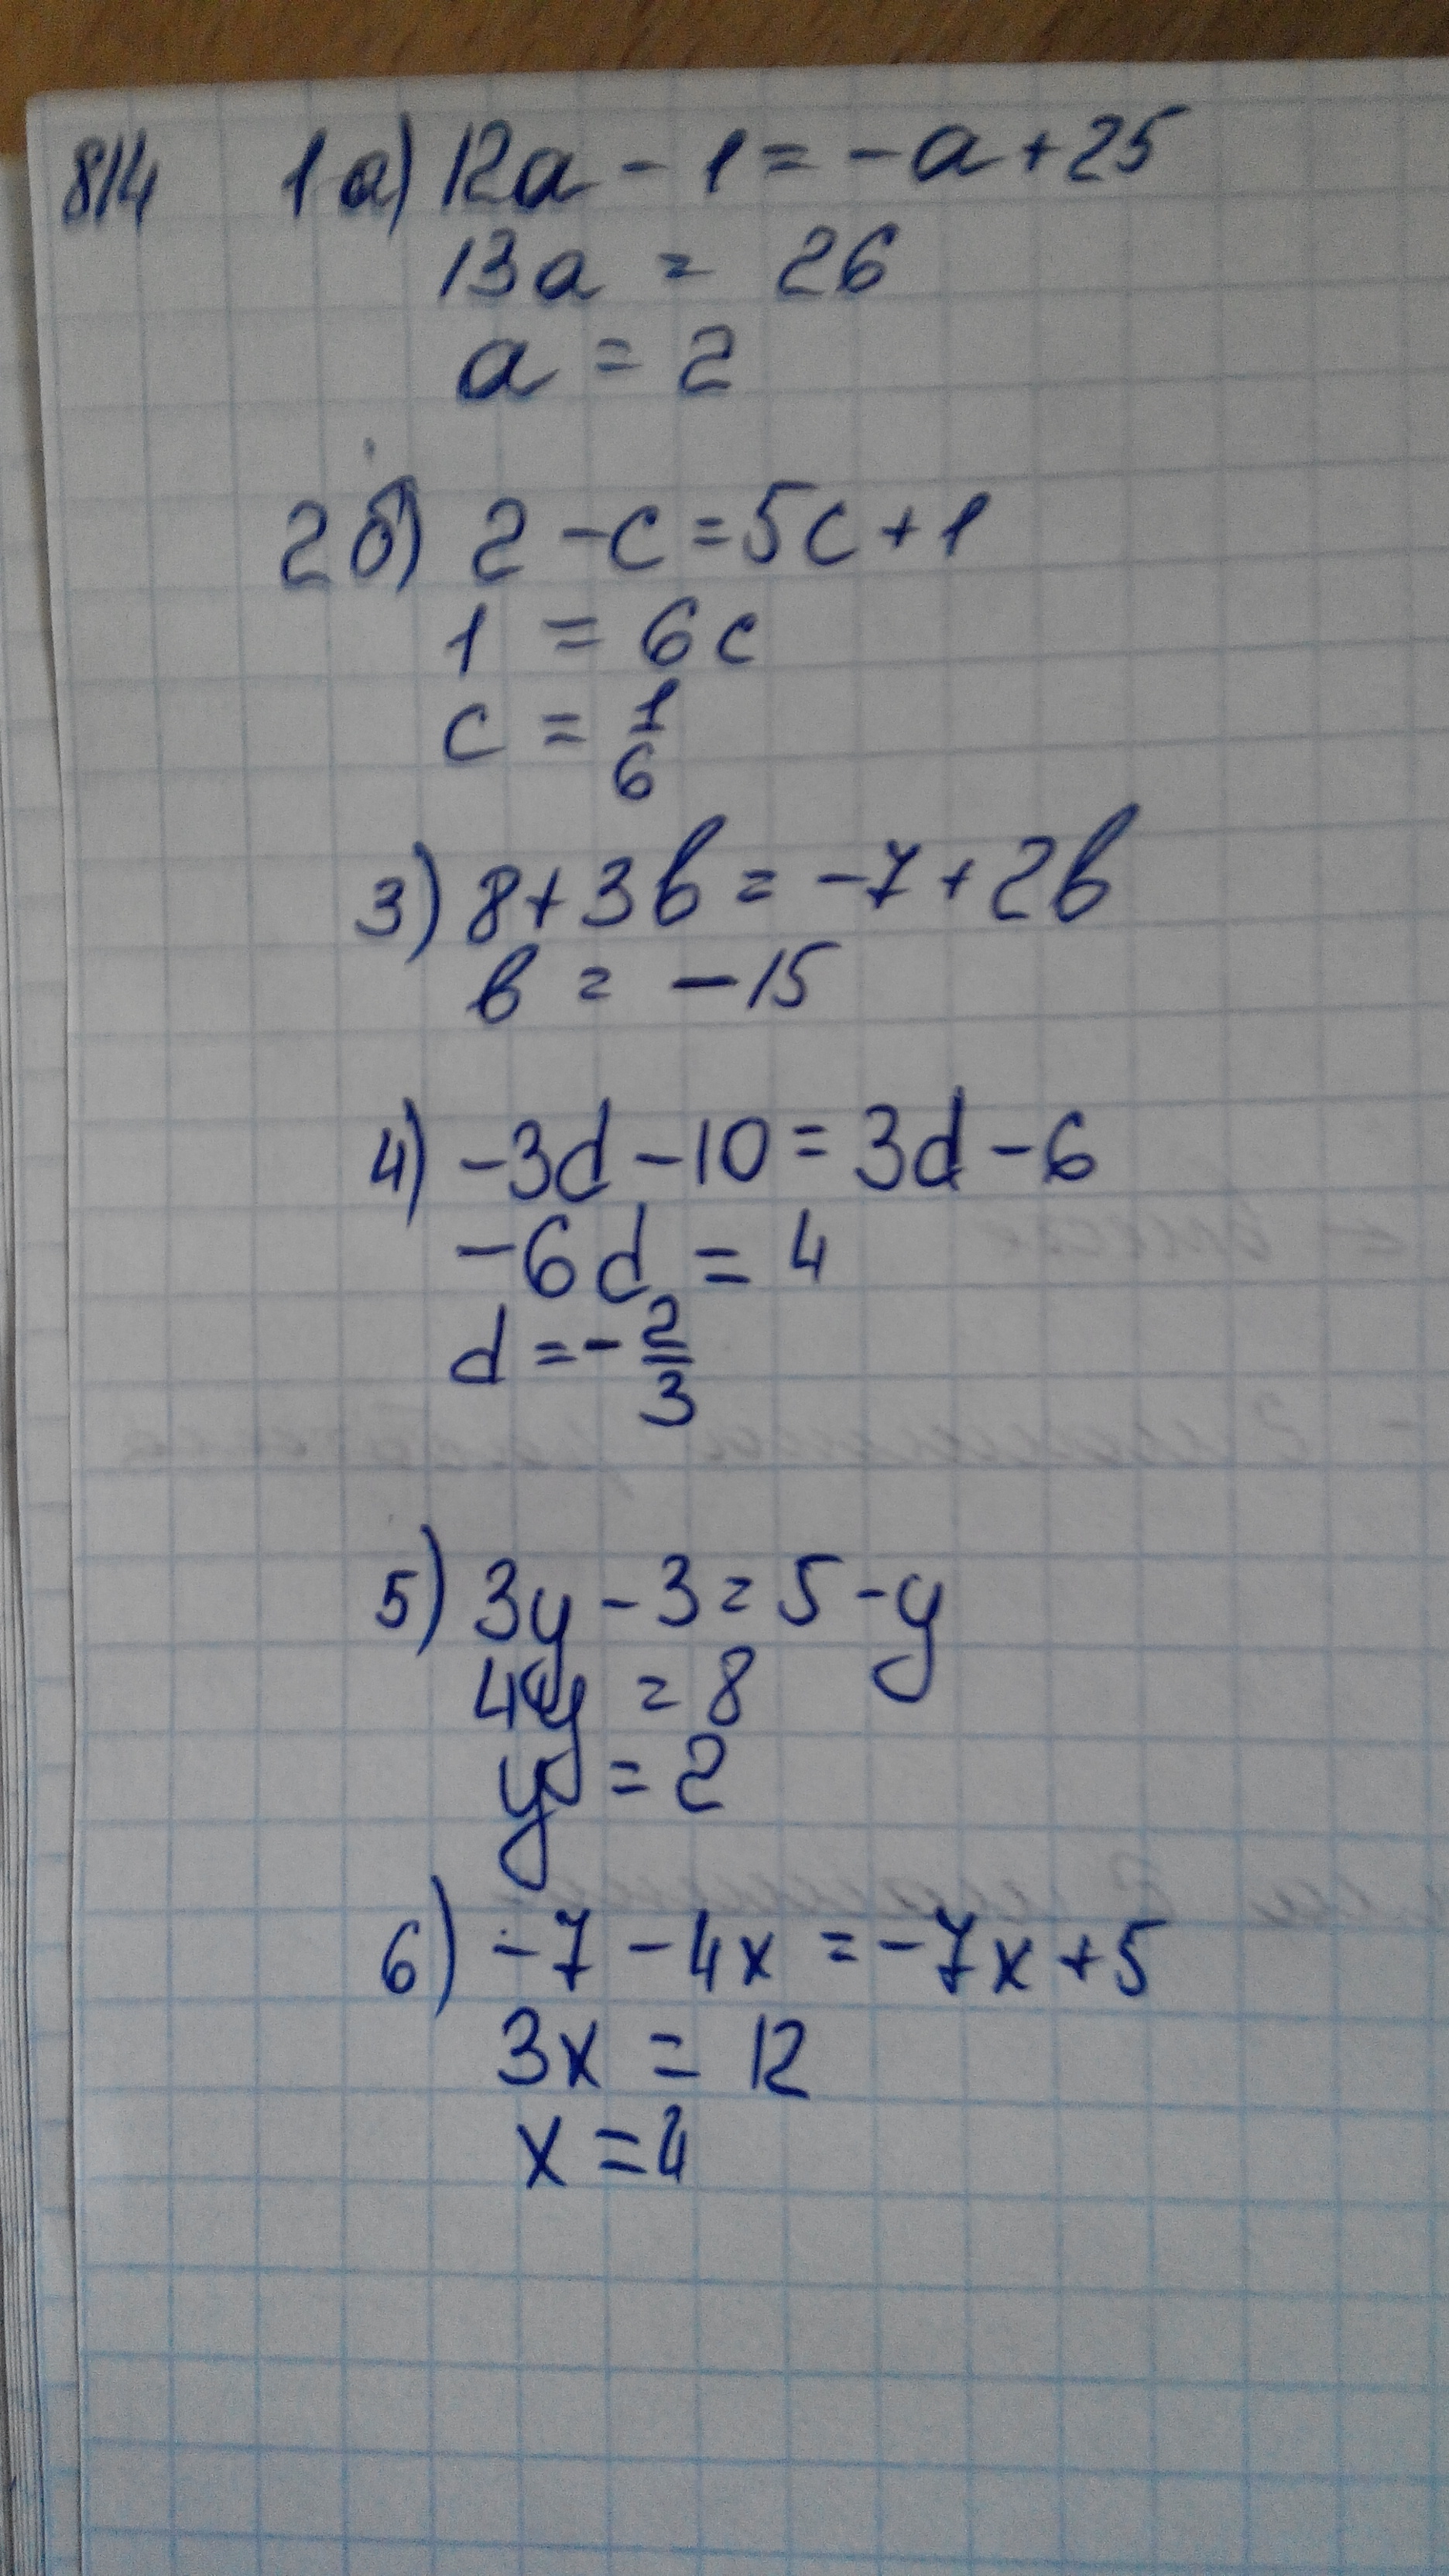 814 1а) 12a - 1 = -a + 25
13a = 26
a = 2
2б) 2 - c = 5c + 1
1 = 6c
c = 1/6
3) 8 + 3b = -7 + 2b
b = -15
4) -3d - 10 = 3d - 6
-6d = 4
d = -2/3
5) 3y - 3 = 5 - y
4y = 8
y = 2
6) -7 - 4x = -7x + 5
3x = 12
x = 4